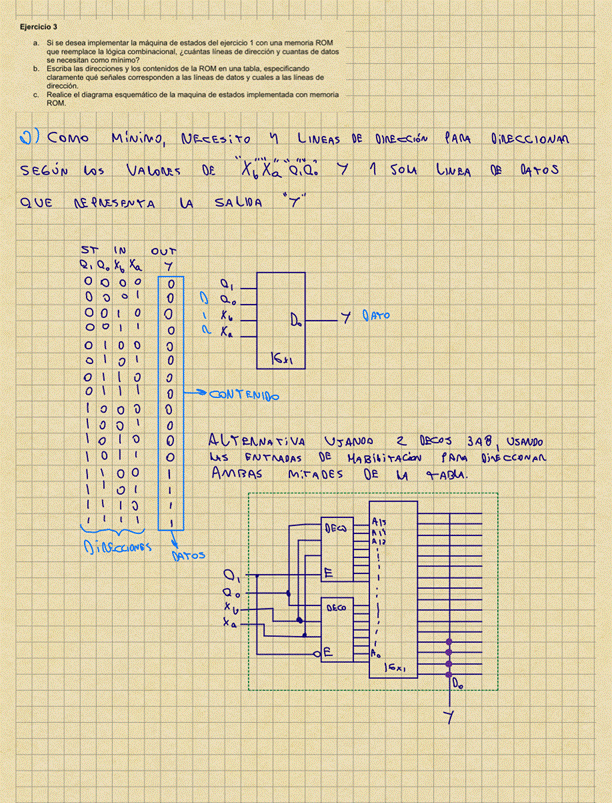 Ejercicio 3
a. Si se desea implementar la máquina de estados del ejercicio 1 con una memoria ROM
que reemplace la lógica combinacional, ¿cuántas líneas de dirección y cuantas de datos
se necesitan como mínimo?
b. Escriba las direcciones y los contenidos de la ROM en una tabla, especificando
claramente qué señales corresponden a las líneas de datos y cuales a las líneas de
dirección.
c. Realice el diagrama esquemático de la maquina de estados implementada con memoria
ROM.
COMO MÍNIMO, NECESITO 4 LINEAS DE DIRECCIÓN PARA DIRECCIONAR
SEGÚN LOS VALORES DE "Xb" "Xa" "Q1" "Q0" Y 1 SOLA LINEA DE DATOS
QUE REPRESENTA LA SALIDA "Y"
ST IN OUT
Q1 Q0 Xb Xa Y
0 0 0 0 0
0 0 0 1 0
0 0 1 0 0
0 0 1 1 0
0 1 0 0 0
0 1 0 1 0
0 1 1 0 0
0 1 1 1 0
1 0 0 0 0
1 0 0 1 0
1 0 1 0 0
1 0 1 1 0
1 1 0 0 1
1 1 0 1 1
1 1 1 0 1
1 1 1 1 1
DIRECCIONES
DATOS
CONTENIDO
Q1
D Q0
I Xb
R Xa
D0
Y DATO
16x1
ALTERNATIVA USANDO 2 DECOS 3A8, USANDO
LAS ENTRADAS DE HABILITACION PARA DIRECCIONAR
AMBAS MITADES DE LA TABLA.
DECO
E
DECO
E
Q1
Q0
Xb
Xa
A15
A14
A13
A0
16x1
D0
Y